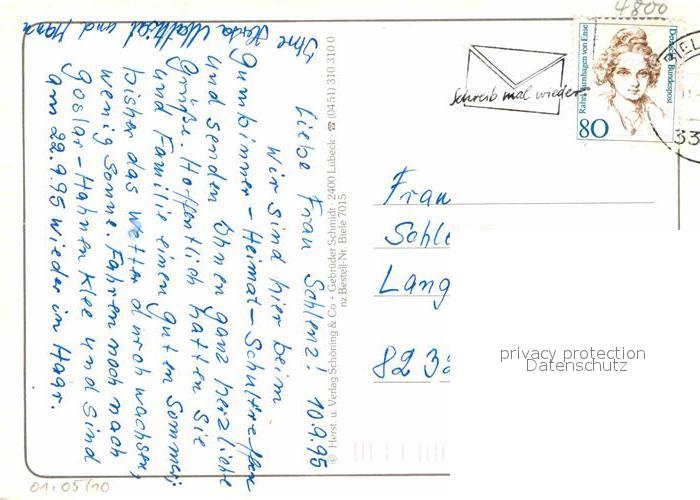 Liebe Frau Schlenz! 10.9.95
Wir sind hier beim
Gumbinner-Heimat-Schultreffen
und senden Ihnen ganz herzliche
Grüße. Hoffentlich hatten Sie
und Familie einen guten Sommer,
bisher das Wetter durchwachsen,
wenig Sonne. Fahren noch nach
Goslar-Hahnenklee und sind
am 22.9.95 wieder in
Ihre Herda und
© Herst. u. Verlag Schöning & Co + Gebrüder Schmidt · 2400 Lübeck · ☎ (0451) 310 310 0
nz Bestell-Nr. Biele 7015
4800
Schreib mal wieder
Rahel Varnhagen von Ense
Deutsche Bundespost
80
BIEL
33
Frau
Schle
Lang
82 32
privacy protection
Datenschutz
01+05/10